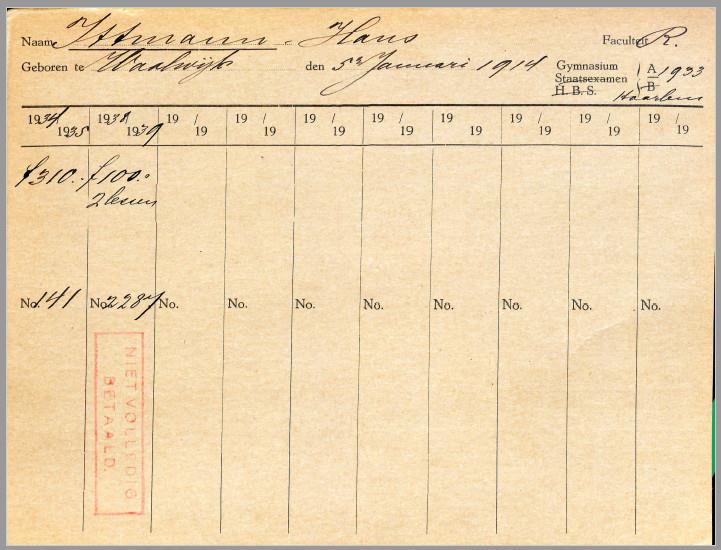 Naam Ittmann - Hans Faculteit R.
Geboren te Waalwijk den 5n Januari 1914
Gymnasium A 1933
Staatsexamen
H. B. S. B
Haarlem
1934/1935 1938/1939 19 / 19 19 / 19 19 / 19 19 / 19 19 / 19 19 / 19 19 / 19 19 / 19
ƒ310.- ƒ100.-
2 lessen
No. 141 No. 2287 No. No. No. No. No. No. No. No.
NIET VOLLEDIG
BETAALD.